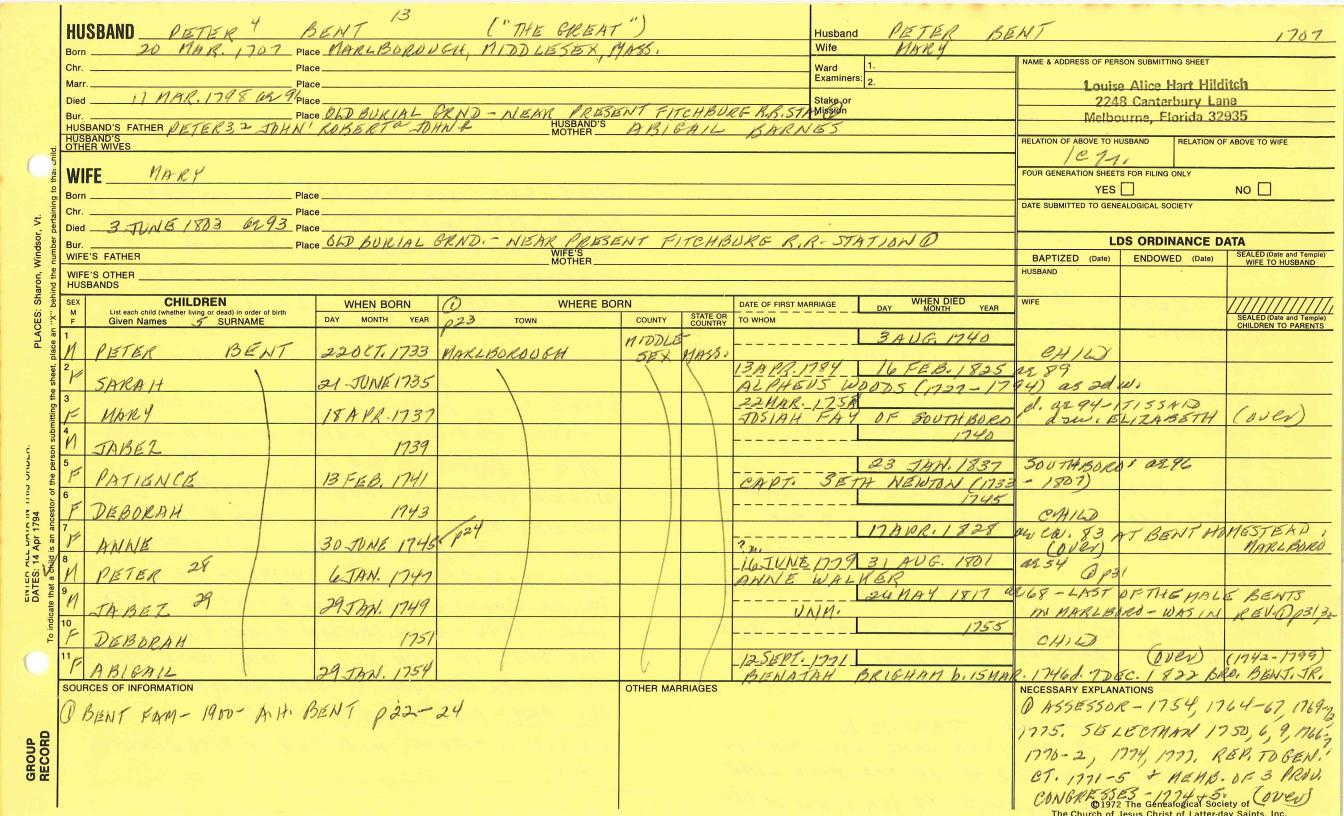 HUSBAND PETER 4 BENT 13 ("THE GREAT")
Born 20 MAR. 1707 Place MARLBOROUGH, MIDDLESEX, MASS.
Chr. Place
Marr. Place
Died 11 MAR. 1798 Place
Bur. Place OLD BURIAL GRND - NEAR PRESENT FITCHBURG R.R. STA
HUSBAND'S FATHER PETER 3, 2 JOHN 1 ROBERT JOHN HUSBAND'S MOTHER ABIGAIL BARNES
HUSBAND'S OTHER WIVES
Husband PETER BENT 1707
Wife MARY
Ward Examiners: 1.
2.
Stake or Mission
NAME & ADDRESS OF PERSON SUBMITTING SHEET
Louise Alice Hart Hilditch
2248 Canterbury Lane
Melbourne, Florida 32935
RELATION OF ABOVE TO HUSBAND RELATION OF ABOVE TO WIFE
FOUR GENERATION SHEETS FOR FILING ONLY
YES NO
DATE SUBMITTED TO GENEALOGICAL SOCIETY
WIFE MARY
Born Place
Chr. Place
Died 3 JUNE 1803 ae 93 Place
Bur. Place OLD BURIAL GRND. - NEAR PRESENT FITCHBURG R.R. STATION ①
WIFE'S FATHER WIFE'S MOTHER
WIFE'S OTHER HUSBANDS
LDS ORDINANCE DATA
BAPTIZED (Date) ENDOWED (Date) SEALED (Date and Temple) WIFE TO HUSBAND
HUSBAND
WIFE
SEALED (Date and Temple) CHILDREN TO PARENTS
SEX M F CHILDREN List each child (whether living or dead) in order of birth Given Names 5 SURNAME
WHEN BORN DAY MONTH YEAR
① p23 WHERE BORN TOWN COUNTY STATE OR COUNTRY
DATE OF FIRST MARRIAGE TO WHOM
WHEN DIED DAY MONTH YEAR
1 M PETER BENT 22 OCT. 1733 MARLBOROUGH MIDDLESEX MASS. 3 AUG. 1740 CHILD
2 F SARAH 21 JUNE 1735 13 APR. 1784 16 FEB. 1825 ae 89
ALPHEUS WOODS (1727-1794) as 2d w.
3 F MARY 18 APR. 1737 22 MAR. 1758 d. ae 94 - IT IS SAID
JOSIAH FAY OF SOUTHBORO ELIZABETH (over)
4 M JABEZ 1739 1740
5 F PATIENCE 13 FEB. 1741 23 JAN. 1837 SOUTHBORO' ae 96
CAPT. SETH NEWTON (1733 - 1807)
6 F DEBORAH 1743 1745 CHILD
7 F ANNE 30 JUNE 1745 p24 17 APR. 1828 83 AT BENT HOMESTEAD,
(over) MARLBORO
8 M PETER 28 6 JAN. 1747 16 JUNE 1779 31 AUG. 1801 ae 54
ANNE WALKER ① p31
9 M JABEZ 29 29 JAN. 1749 UNM. 24 MAY 1817 ae 68 - LAST OF THE MALE BENTS
IN MARLBORO - WAS IN REV. ① p31,32
10 F DEBORAH 1751 1755 CHILD
11 F ABIGAIL 29 JAN. 1754 12 SEPT. 1771 (over) (1742-1799)
BENAJAH BRIGHAM b. 15 MAR. 1746 d. 7 DEC. 1822 BRO. BENT, JR.
SOURCES OF INFORMATION
① BENT FAM - 1900 - A.H. BENT p22-24
OTHER MARRIAGES
NECESSARY EXPLANATIONS
① ASSESSOR - 1754, 1764-67, 1769-
1775. SELECTMAN 1750, 6, 9, 1766-
1770-2, 1774, 1777. REP. TO GEN.
CT. 1771-5 + MEMB. OF 3 PROV.
CONGRESSES - 1774 + 5. (over)
©1972 The Genealogical Society of
The Church of Jesus Christ of Latter-day Saints, Inc.
PLACES: Sharon, Windsor, Vt.
ENTER ALL DATA IN THIS ORDER:
DATES: 14 Apr 1794
To indicate that a child is an ancestor of the person submitting the sheet, place an "X" behind the number pertaining to that child.
GROUP RECORD